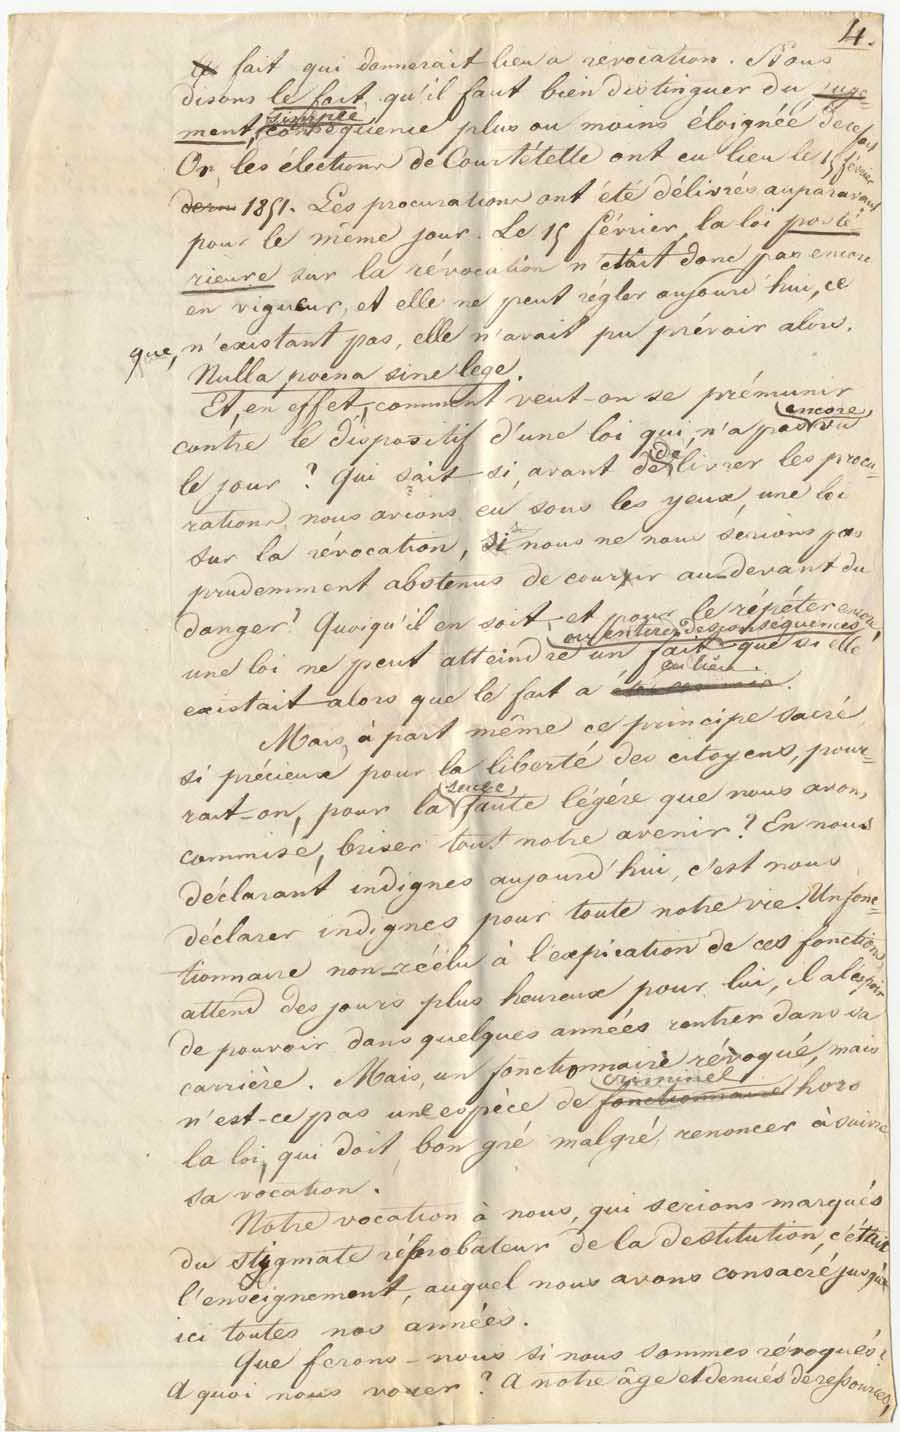 4.
fait qui donnerait lieu a révocation. Nous
disons le fait, qu'il faut bien distinguer du juge=
ment, simple conséquence plus ou moins éloignée de ce fait
Or, les élections de Courtételle ont eu lieu le 15 février
dern 1851. Les procurations ont été délivrés auparavant
pour le même jour. Le 15 février, la loi posté
rieure sur la révocation n'était donc pas encore
en vigueur, et elle ne peut régler aujourd'hui, ce
que, n'existant pas, elle n'avait pu prévoir alors.
Nulla poena sine lege.
Et, en effet, comment veut-on se prémunir
contre le dispositif d'une loi qui n'a pas encore vu
le jour? Qui sait si, avant de délivrer les procu=
rations nous avions eu sous les yeux, une loi
sur la révocation, si nous ne nous serions pas
prudemment abstenus de courir au-devant du
danger? Quoiqu'il en soit, et pour le répéter encore,
une loi ne peut atteindre un fait ou entirer des conséquences que si elle
existait alors que le fait a eu lieu.
Mais, à part même ce principe sacré
si précieux pour la liberté des citoyens, pour=
rait-on, pour la seule faute légére que nous avons
commise, briser tout notre avenir? En nous
déclarant indignes aujourd'hui, c'est nous
déclarer indignes pour toute notre vie. Un fonc=
tionnaire non-réélu à l'expiration de ces fonctions
attend des jours plus heureux pour lui, il a l'espoir
de pouvoir dans quelques années rentrer dans sa
carrière. Mais, un fonctionnaire révoqué, mais
n'est-ce pas une espèce de fonctionnaire criminel hors
la loi, qui doit, bon gré malgré, renoncer à suivre
sa vocation.
Notre vocation à nous, qui serions marqués
du stygmate réprobateur de la destitution, c'était
l'enseignement, auquel nous avons consacré jusqu'
ici toutes nos années.
Que ferons-nous si nous sommes révoqués?
A quoi nous vouer? A notre âge et denués de ressources,